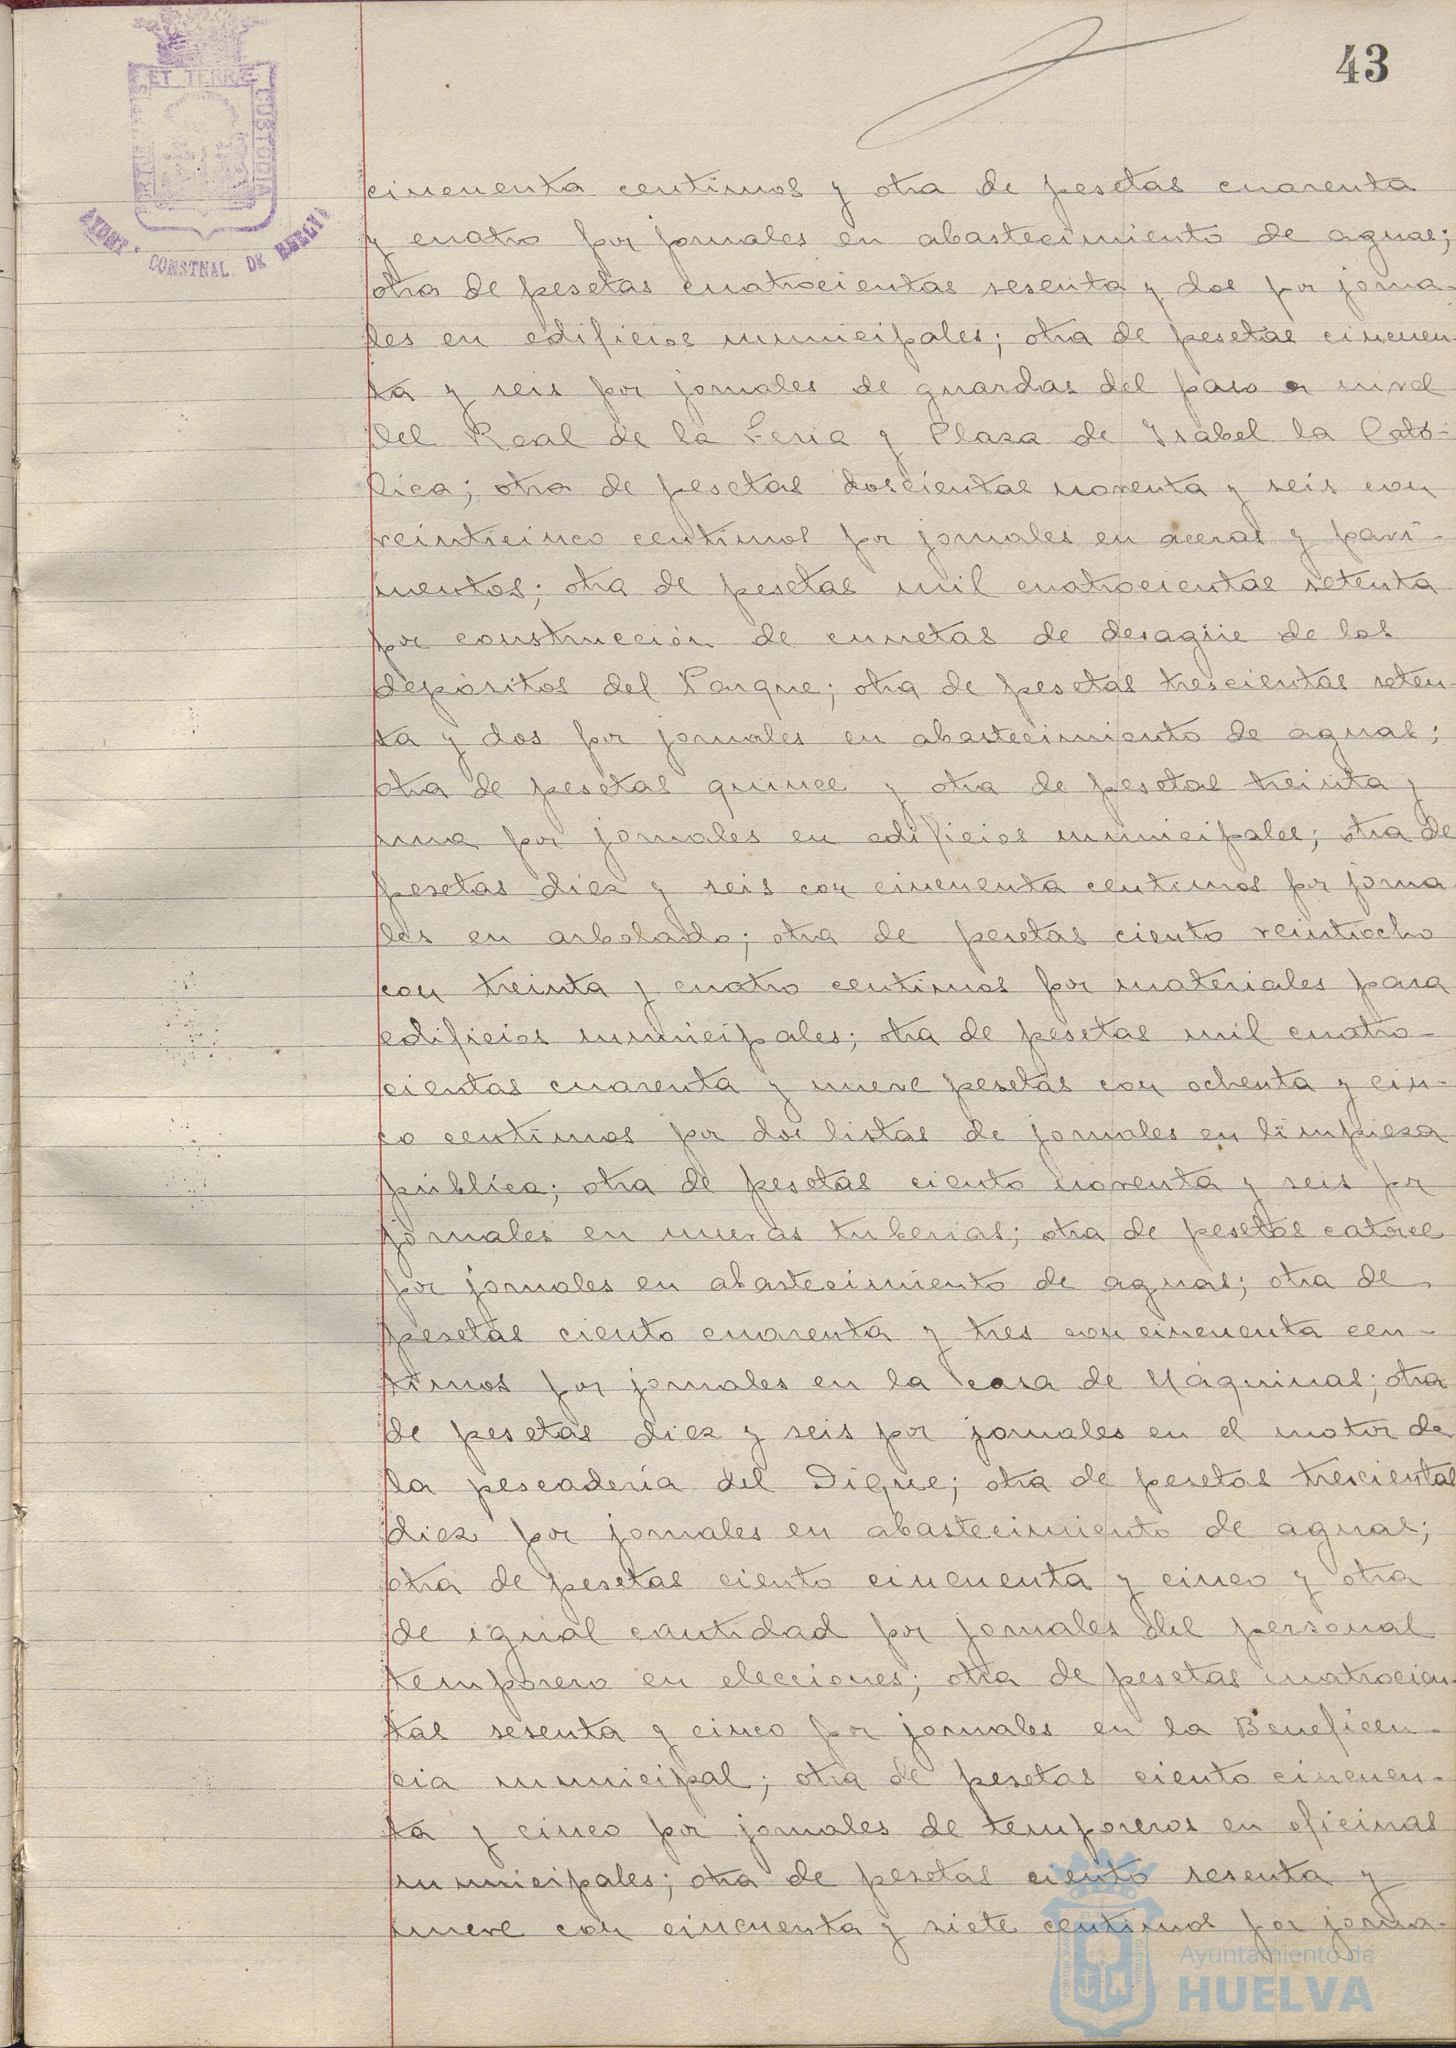 43
ET TERRÆ
CUSTODIA
AYUNT. CONSTNAL. DE HUELVA
cincuenta centimos y otra de pesetas cuarenta
y cuatro por jornales en abastecimiento de aguas;
otra de pesetas cuatrocientas sesenta y dos por jorna-
les en edificios municipales; otra de pesetas cincuen-
ta y seis por jornales de guardas del paso a nivel
del Real de la Feria y Plaza de Isabel la Cató-
lica; otra de pesetas doscientas noventa y seis con
veinticinco centimos por jornales en aceras y pavi-
mentos; otra de pesetas mil cuatrocientas setenta
por construcción de cunetas de desagüe de los
depósitos del Parque; otra de pesetas trescientas seten-
ta y dos por jornales en abastecimiento de aguas;
otra de pesetas quince y otra de pesetas treinta y
una por jornales en edificios municipales; otra de
pesetas diez y seis con cincuenta centimos por jorna-
les en arbolado; otra de pesetas ciento veintiocho
con treinta y cuatro centimos por materiales para
edificios municipales; otra de pesetas mil cuatro-
cientas cuarenta y nueve pesetas con ochenta y cin-
co centimos por dos listas de jornales en limpieza
pública; otra de pesetas ciento noventa y seis por
jornales en nuevas tuberias; otra de pesetas catorce
por jornales en abastecimiento de aguas; otra de
pesetas ciento cuarenta y tres con cincuenta cen-
timos por jornales en la casa de Máquinas; otra
de pesetas diez y seis por jornales en el motor de
la pescadería del Dique; otra de pesetas trescientas
diez por jornales en abastecimiento de aguas;
otra de pesetas ciento cincuenta y cinco y otra
de igual cantidad por jornales del personal
temporero en elecciones; otra de pesetas cuatrocien-
tas sesenta y cinco por jornales en la Beneficen-
cia municipal; otra de pesetas ciento cincuen-
ta y cinco por jornales de temporeros en oficinas
municipales; otra de pesetas ciento sesenta y
nueve con cincuenta y siete centimos por jorna-
Ayuntamiento de
HUELVA